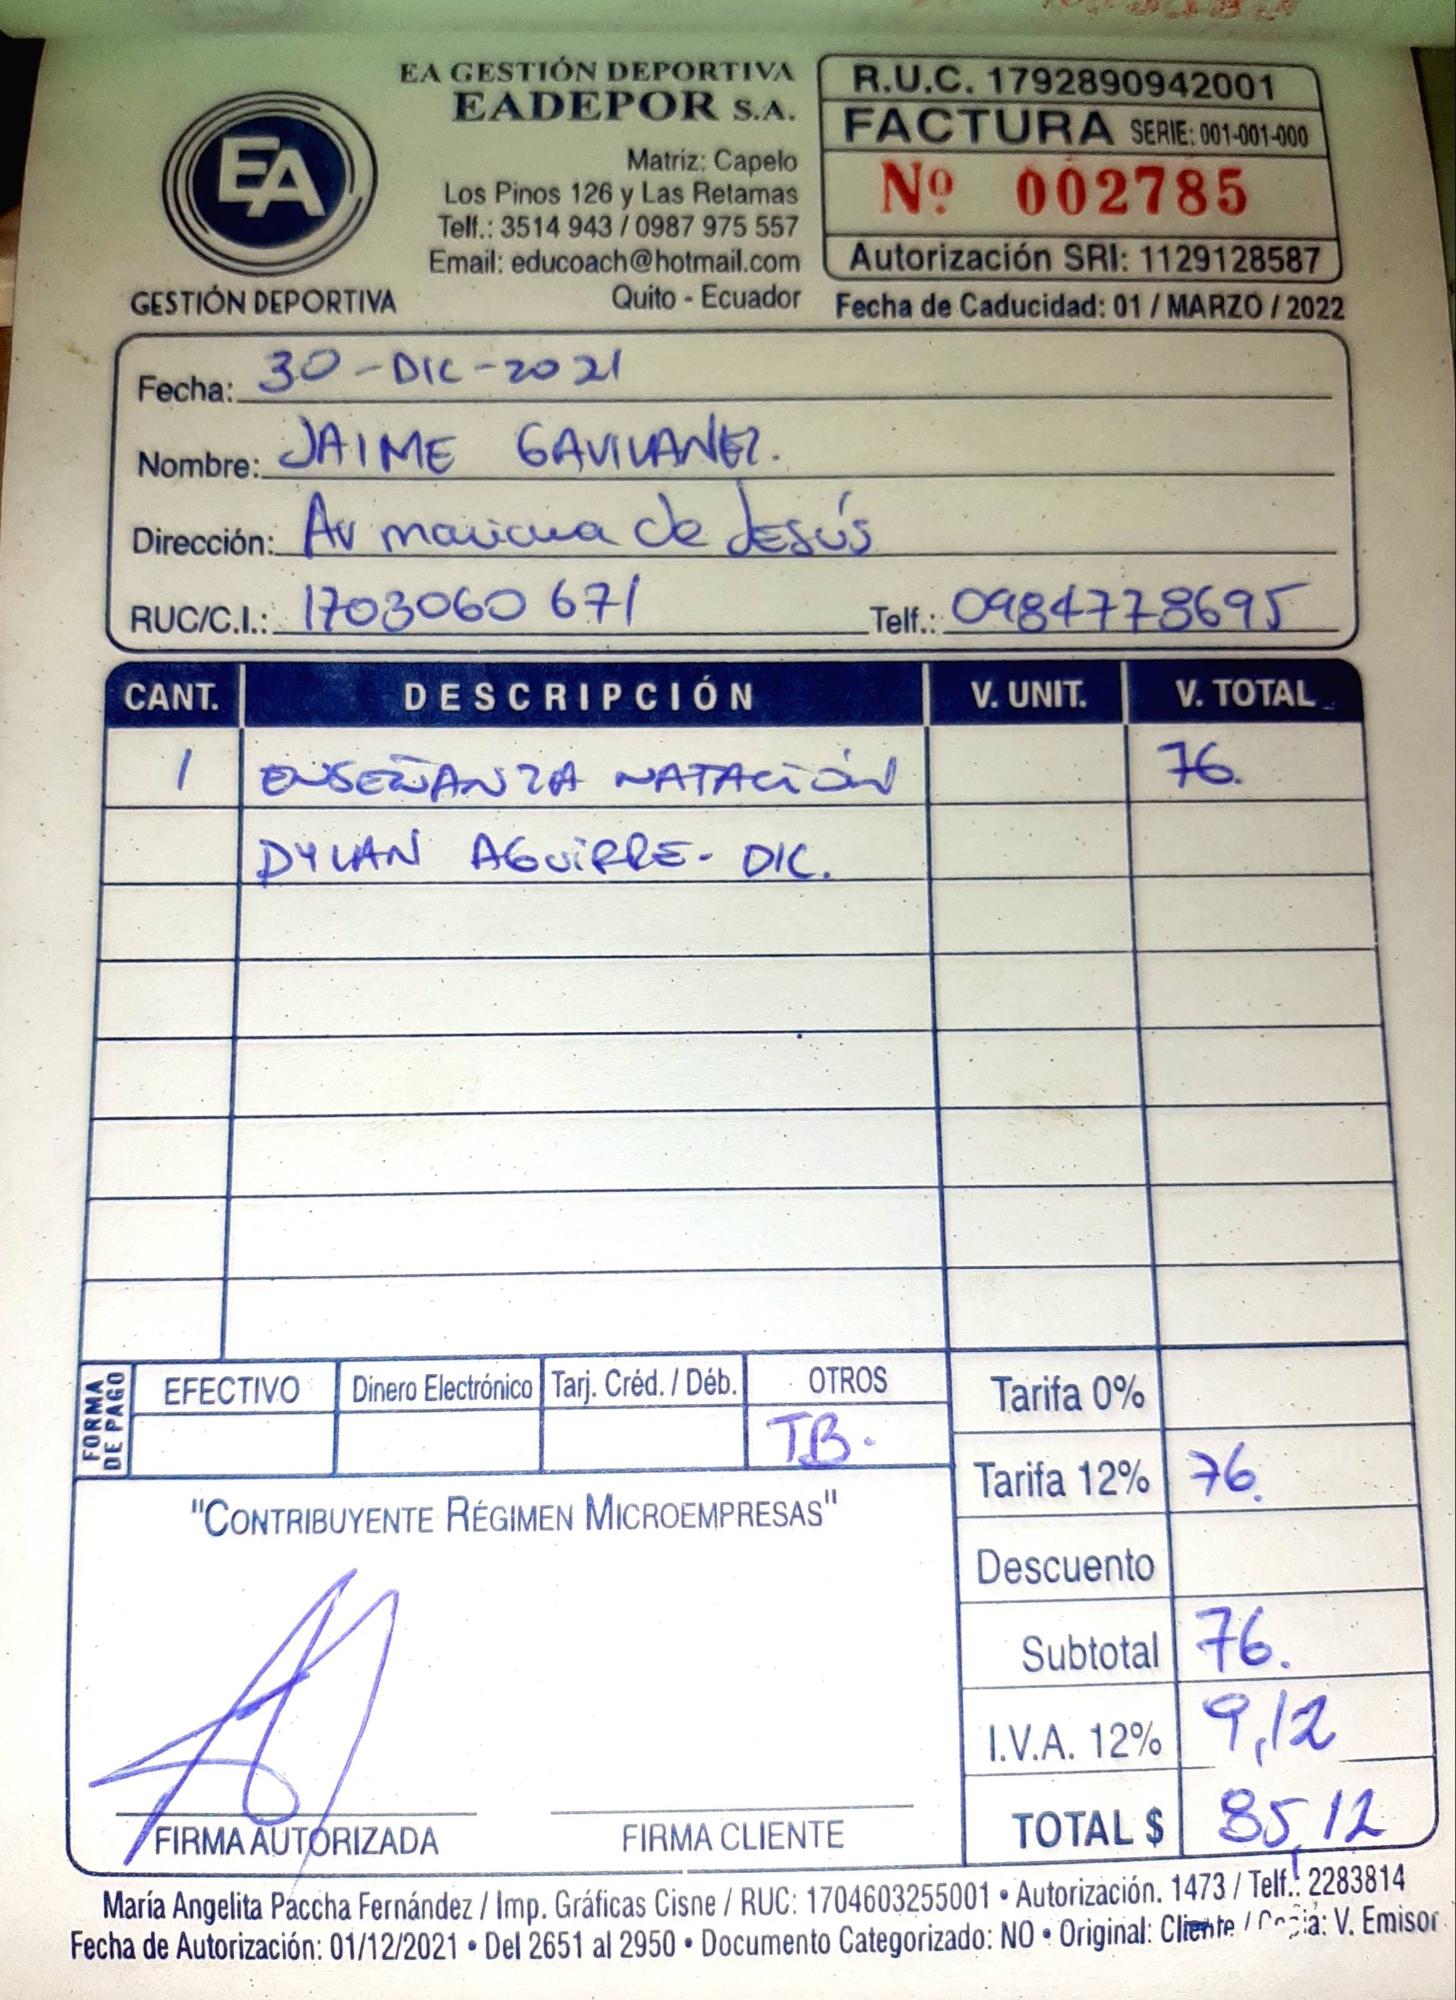 EA GESTIÓN DEPORTIVA
EADEPOR S.A.
EA
GESTIÓN DEPORTIVA
Matriz: Capelo
Los Pinos 126 y Las Retamas
Telf.: 3514 943 / 0987 975 557
Email: educoach@hotmail.com
Quito - Ecuador
R.U.C. 1792890942001
FACTURA SERIE: 001-001-000
Nº 002785
Autorización SRI: 1129128587
Fecha de Caducidad: 01 / MARZO / 2022
Fecha: 30-DIC-2021
Nombre: JAIME GAVILANEZ.
Dirección: Av mariana de Jesús
RUC/C.I.: 1703060671 Telf.: 0984778695
CANT. DESCRIPCIÓN V. UNIT. V. TOTAL
1 ENSEÑANZA NATACIÓN 76.
DYLAN AGUIRRE- DIC.
FORMA DE PAGO
EFECTIVO Dinero Electrónico Tarj. Créd. / Déb. OTROS
TB.
Tarifa 0%
Tarifa 12% 76.
Descuento
Subtotal 76.
I.V.A. 12% 9,12
TOTAL $ 85,12
"CONTRIBUYENTE RÉGIMEN MICROEMPRESAS"
FIRMA AUTORIZADA FIRMA CLIENTE
María Angelita Paccha Fernández / Imp. Gráficas Cisne / RUC: 1704603255001 • Autorización. 1473 / Telf.: 2283814
Fecha de Autorización: 01/12/2021 • Del 2651 al 2950 • Documento Categorizado: NO • Original: Cliente / Copia: V. Emisor